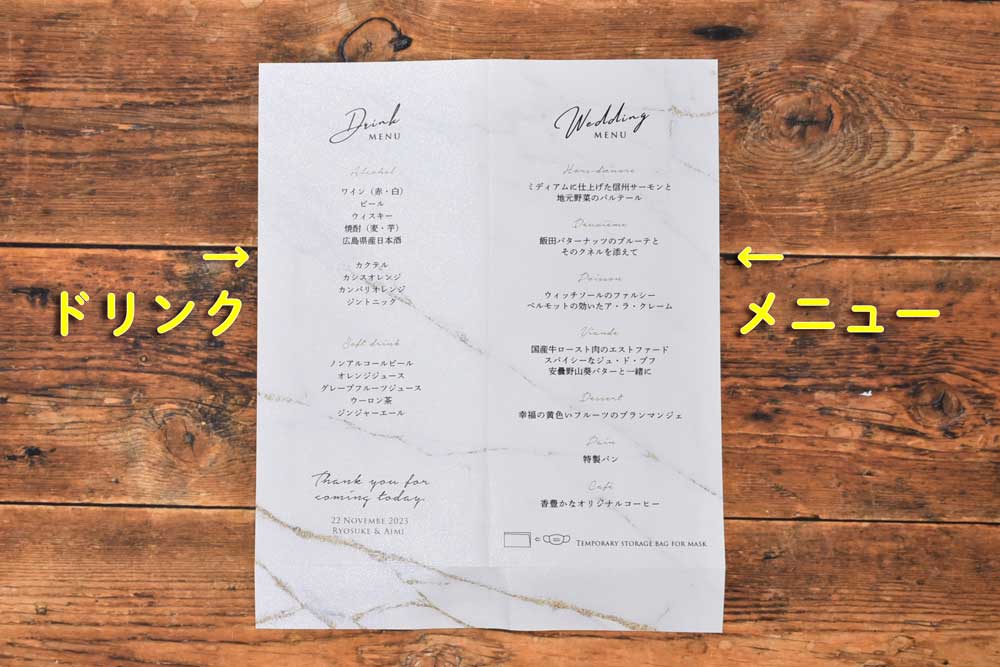 Drink
MENU
Alcohol
ワイン（赤・白）
ビール
ウィスキー
焼酎（麦・芋）
広島県産日本酒
カクテル
カシスオレンジ
カンパリオレンジ
ジントニック
Soft drink
ノンアルコールビール
オレンジジュース
グレープフルーツジュース
ウーロン茶
ジンジャーエール
Thank you for
coming today.
22 Novembe 2023
Ryosuke & Aimi
Wedding
MENU
Hors-d'œuvre
ミディアムに仕上げた信州サーモンと
地元野菜のバルテール
Deuxième
飯田バターナッツのブルーテと
そのクネルを添えて
Poisson
ウィッチソールのファルシー
ベルモットの効いたア・ラ・クレーム
Viande
国産牛ロースト肉のエストファード
スパイシーなジュ・ド・ブフ
安曇野山葵バターと一緒に
Dessert
幸福の黄色いフルーツのブランマンジェ
Pain
特製パン
Café
香豊かなオリジナルコーヒー
Temporary storage bag for mask
→
ドリンク
←
メニュー